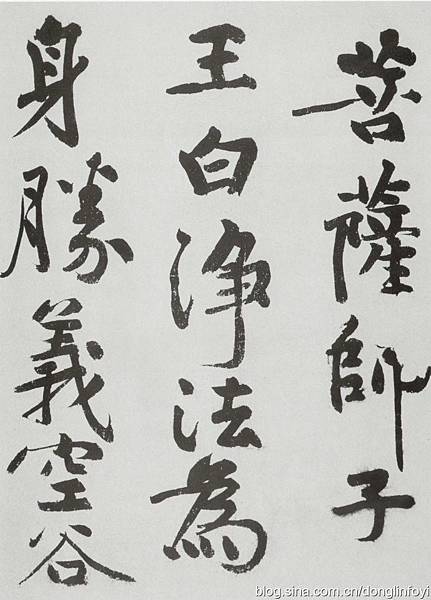 菩薩師子
王白浄法為
身勝義空谷
blog.sina.com.cn/donglinfoyi